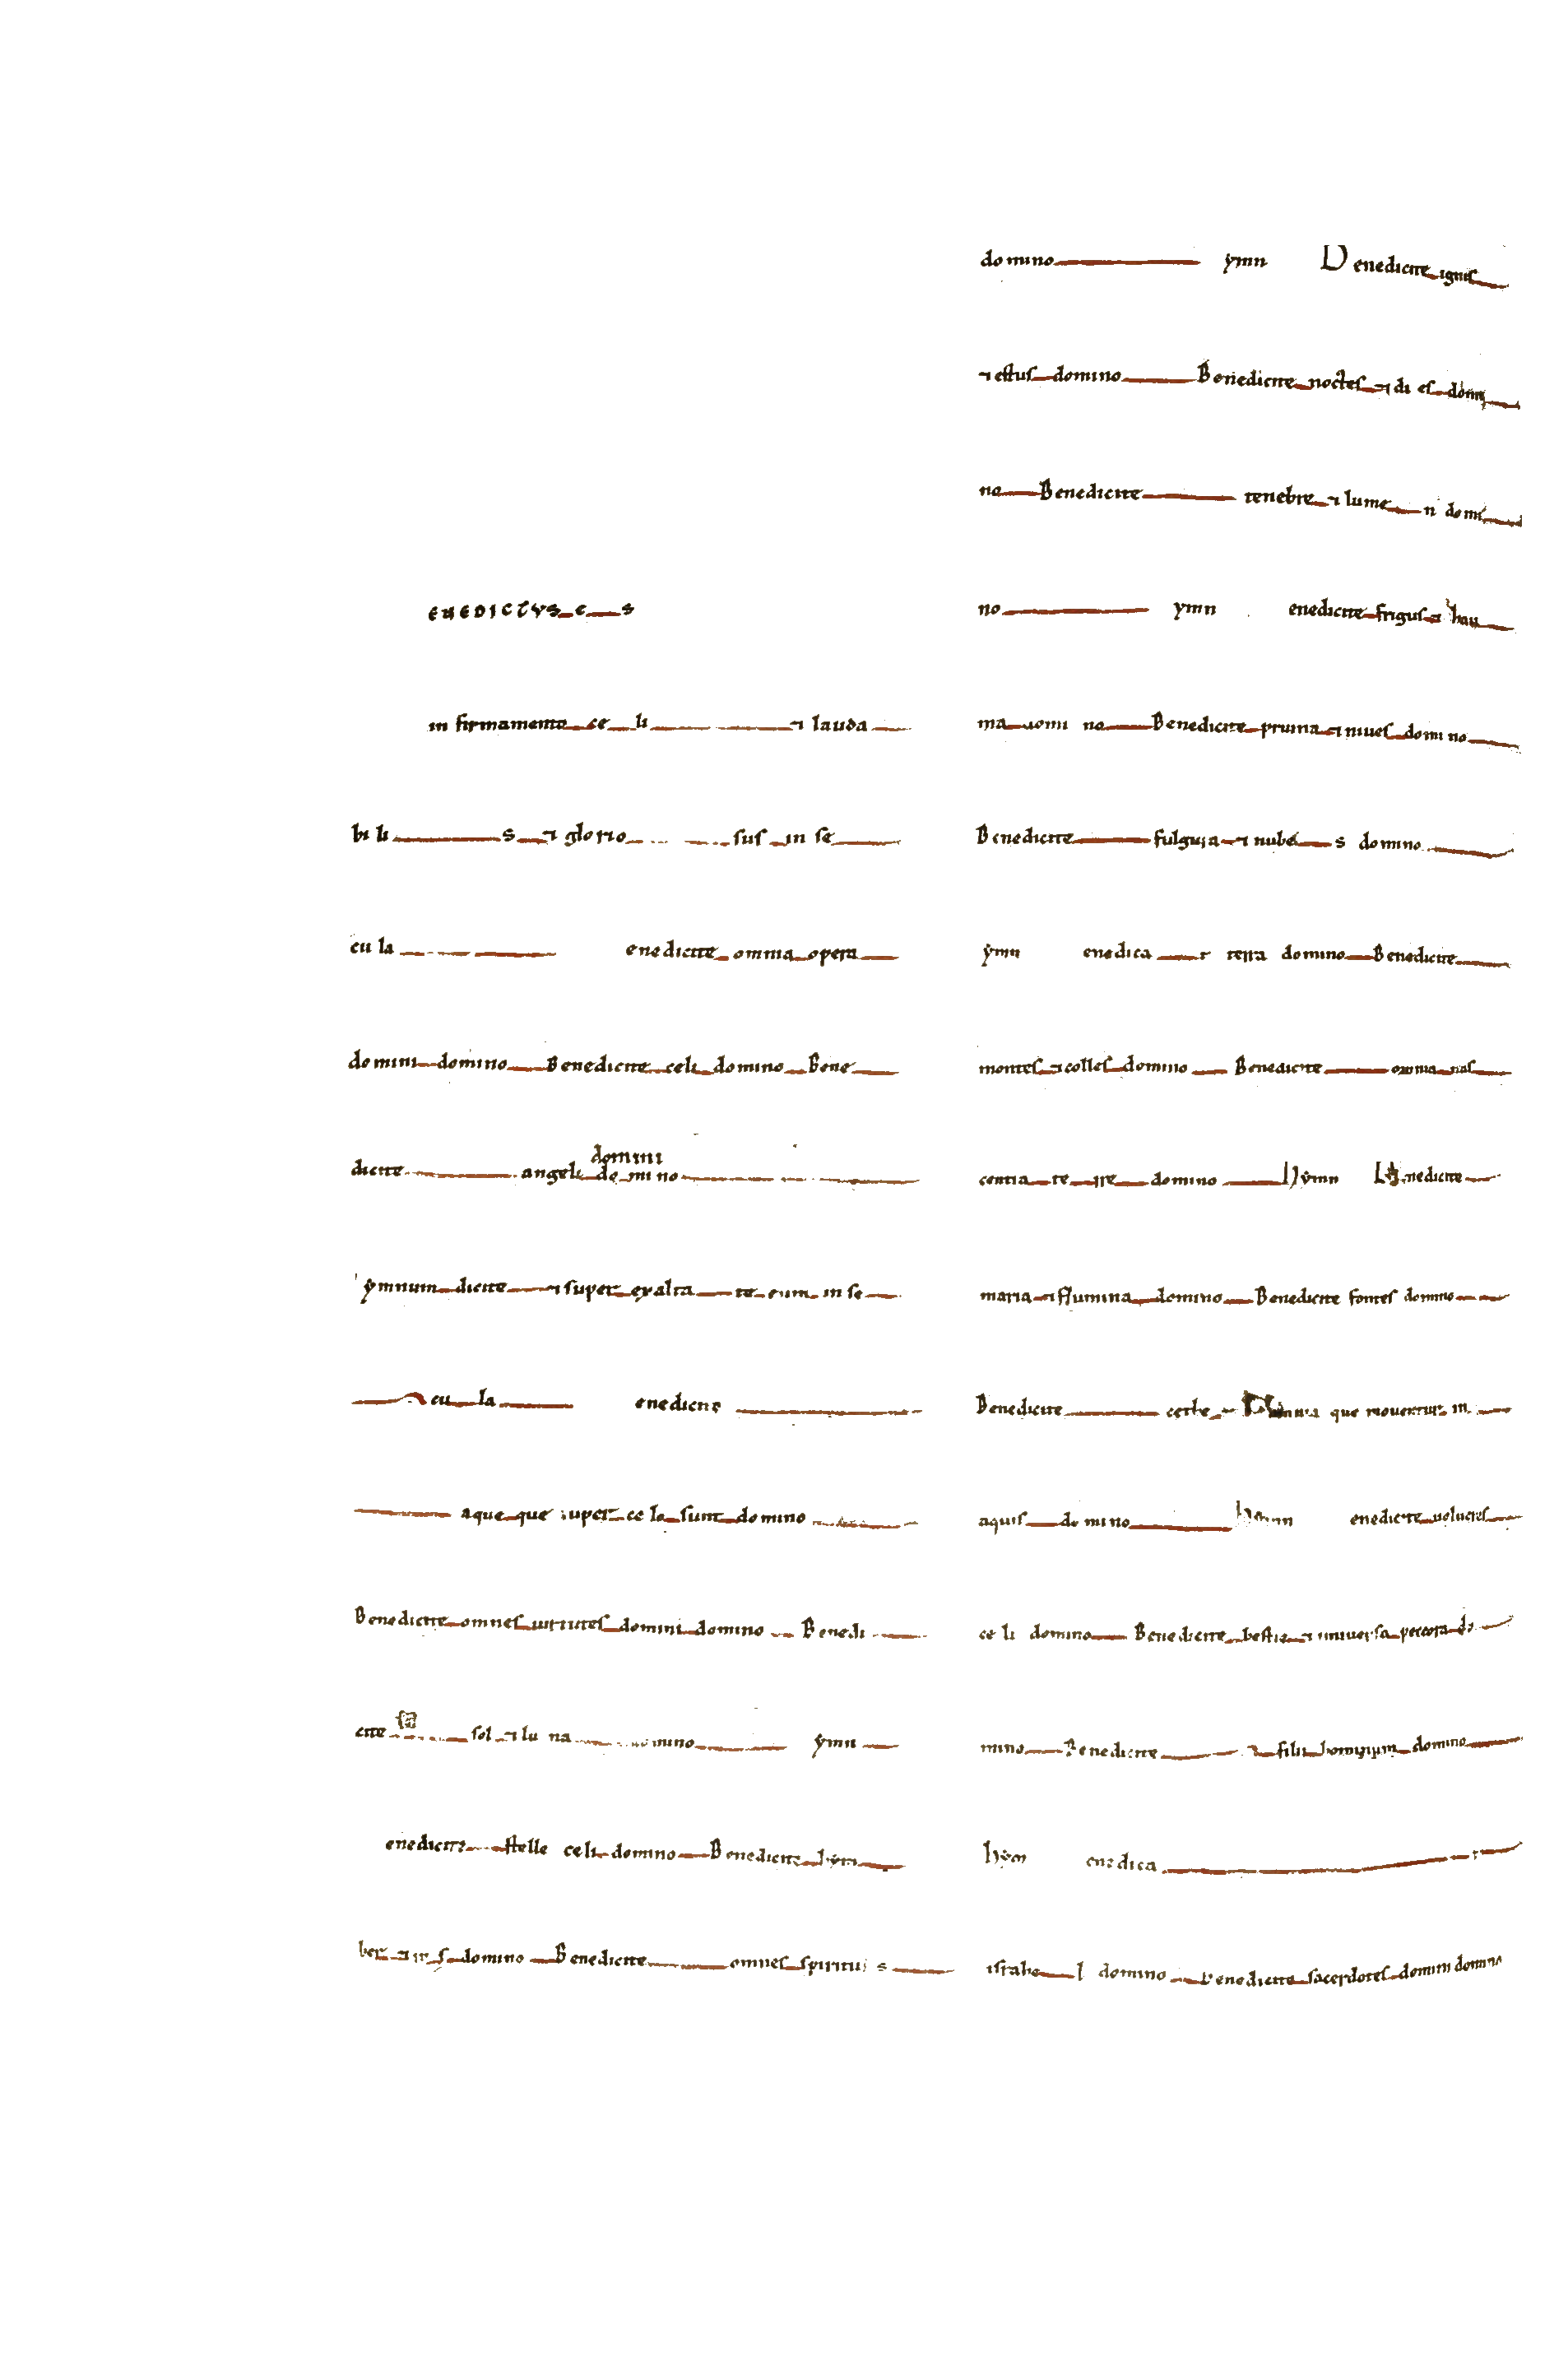 ENEDICTVS e s
in firmamento ce li ⁊ lauda
bi li s ⁊ glorio sus in se
cu la enedicite omnia opera
domini domino Benedicite celi domino Bene
domini
dicite angeli do mi no
ymnum dicite ⁊ super exalta te eum in se
cu la enedicite
aque que super ce lo sunt domino
Benedicite omnes uirtutes domini domino Benedi
cite sol ⁊ lu na domino ymn
enedicite stelle celi domino Benedicite ym
ber ⁊ domino Benedicite omnes spiritu s
domino ymn enedicite ignis
⁊ estus domino Benedicite noctes ⁊ di es domi
no Benedicite tenebre ⁊ lume n domi
no ymn enedicite frigus ⁊ cau
ma domi no Benedicite pruina ⁊ niues domi no
Benedicite fulgura ⁊ nube s domino
ymn enedica t terra domino Benedicite
montes ⁊ colles domino Benedicite omnia nas
centia te rre domino ymn nedicite
maria ⁊ flumina domino Benedicite fontes domino
Benedicite cethe ⁊ omnia que mouentur in
aquis do mi no ymn enedicite uolucres
ce li domino Benedicite bestie ⁊ uniuersa peccora do
mino Benedicite filii hominum domino
hym enedica t
israhe l domino Benedicite sacerdotes domini domino